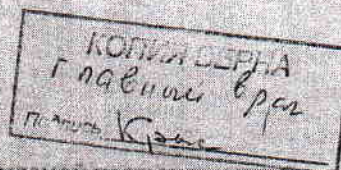 КОПИЯ ВЕРНА
Главный врач
Подпись